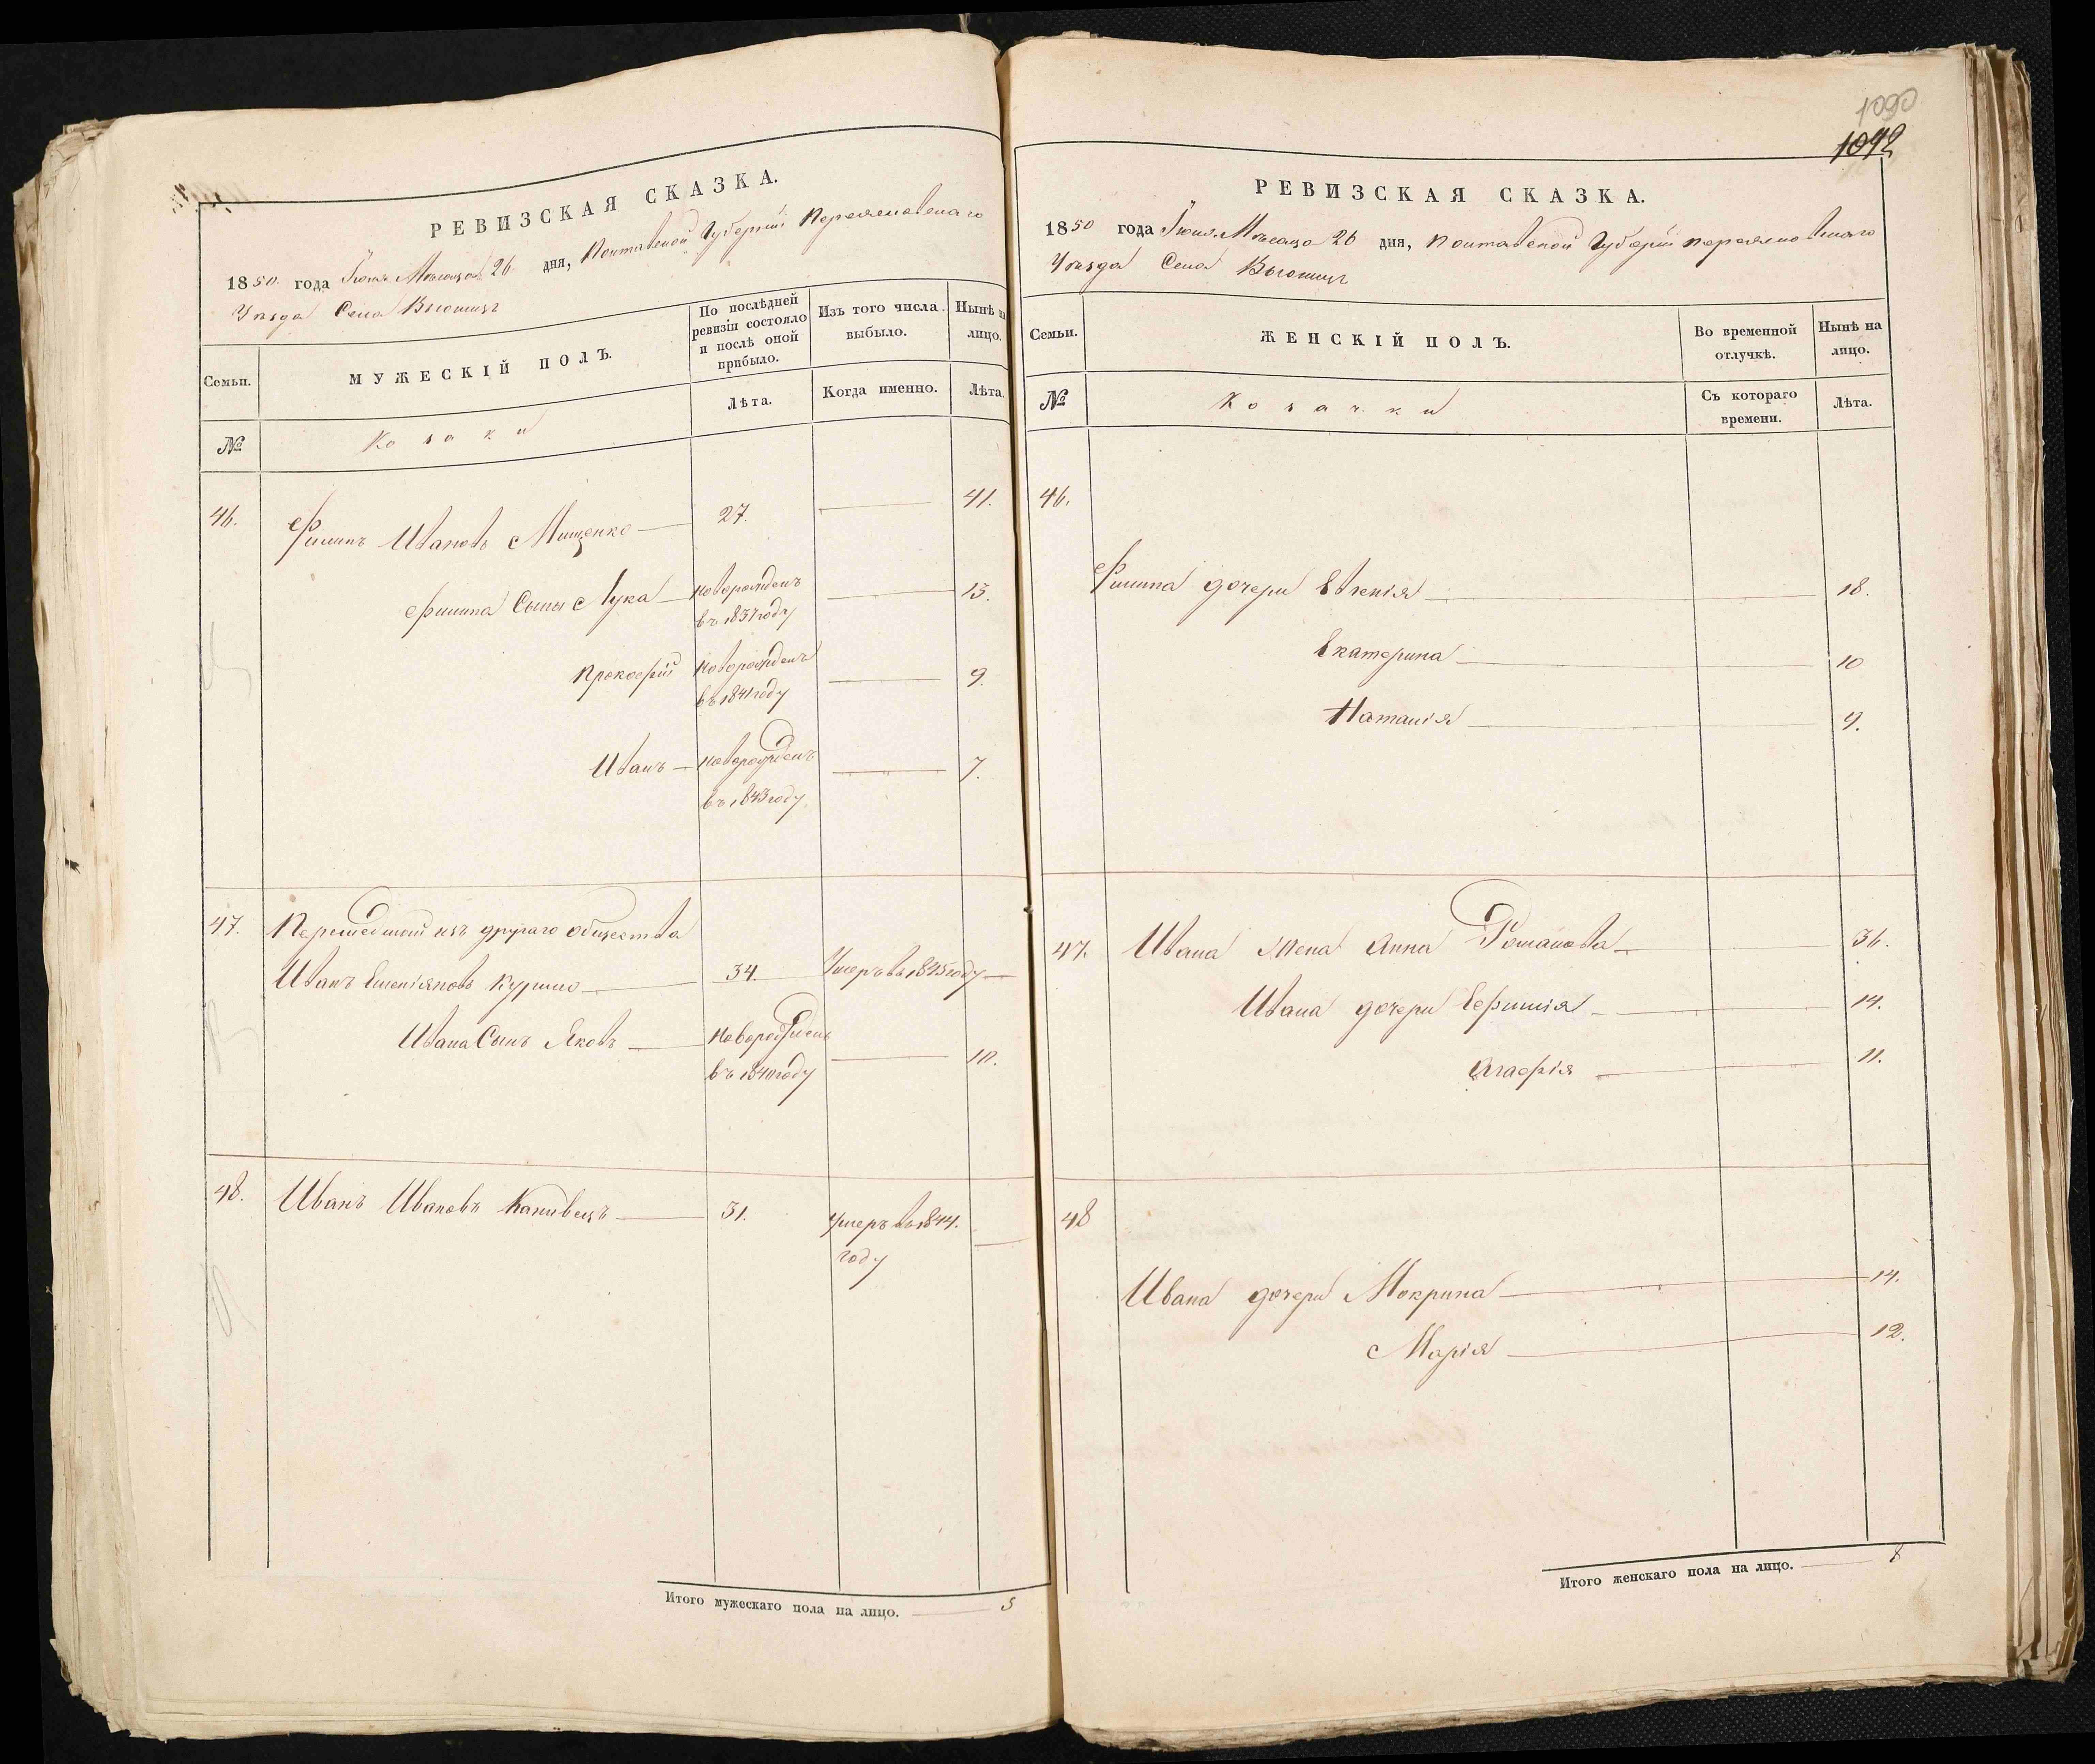 РЕВИЗСКАЯ СКАЗКА.
1850 года Іюня Мѣсяца 26 дня, Полтавской Губерніи Переяславскаго
Уѣзда Села
Семьи.
МУЖЕСКІЙ ПОЛЪ.
По послѣдней ревизіи состояло и послѣ оной прибыло.
Изъ того числа выбыло.
Нынѣ на лицо.
№
Козаки
Лѣта.
Когда именно.
Лѣта.
46. Филипъ Ивановъ Мищенко 27. 41.
Филипа Сыны Лука новорожденъ въ 1837 году 13.
Прокофій новорожденъ въ 1841 году 9.
Иванъ новорожденъ въ 1843 году 7.
47. Перешедшій изъ другаго общества
Иванъ Емеліяновъ 34. Умеръ въ 1845 году
Ивана Сынъ Яковъ новорожденъ въ 1840 году 10.
48. Иванъ Ивановъ Канивецъ 31. Умеръ въ 1844. году
Итого мужескаго пола на лицо. 5
1090
1092
РЕВИЗСКАЯ СКАЗКА.
1850 года Іюня Мѣсяца 26 дня, Полтавской Губерніи Переяславскаго
Уѣзда Села
Семьи.
ЖЕНСКІЙ ПОЛЪ.
Во временной отлучкѣ.
Нынѣ на лицо.
№
Козачки
Съ котораго времени.
Лѣта.
46.
Филипа дочери Евгенія 18.
Екатерина 10
Наталія 9.
47. Ивана жена Анна Романова 36.
Ивана дочери Ефимія 14.
Агафія 11.
48
Ивана дочери Мокрина 14.
Марія 12.
Итого женскаго пола на лицо. 8